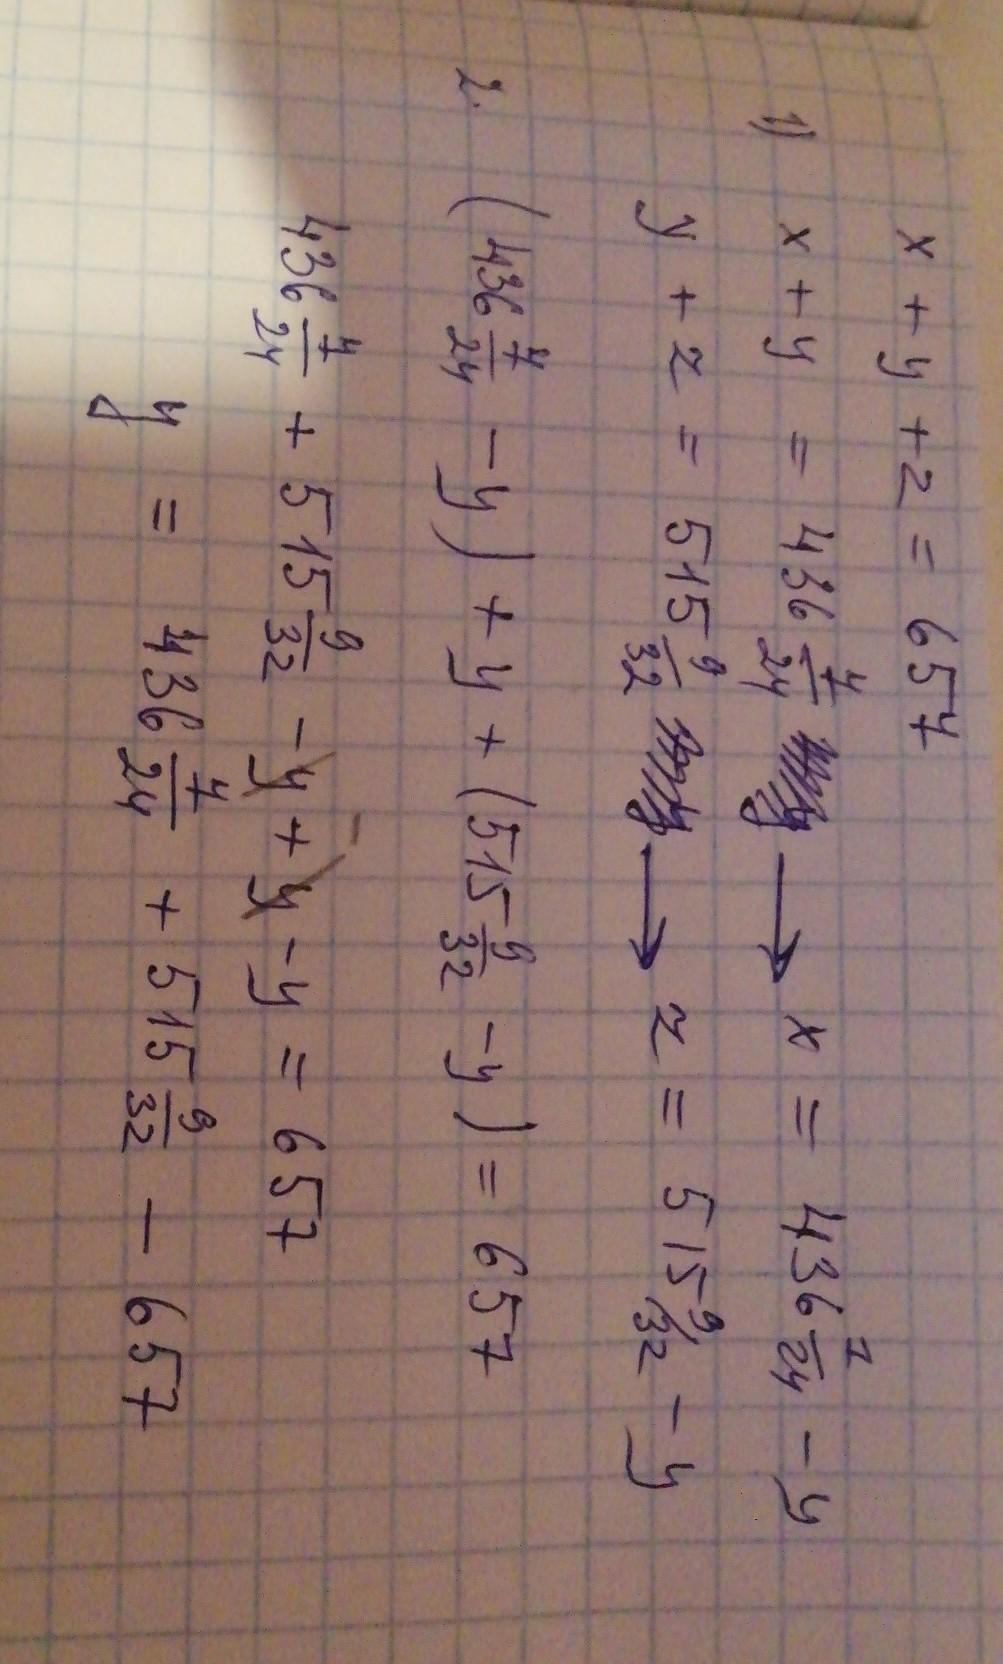 x + y + z = 657
1) x + y = 436 7/24 → x = 436 7/24 - y
y + z = 515 9/32 → z = 515 9/32 - y
2. (436 7/24 - y) + y + (515 9/32 - y) = 657
436 7/24 + 515 9/32 - y + y - y = 657
y = 436 7/24 + 515 9/32 - 657